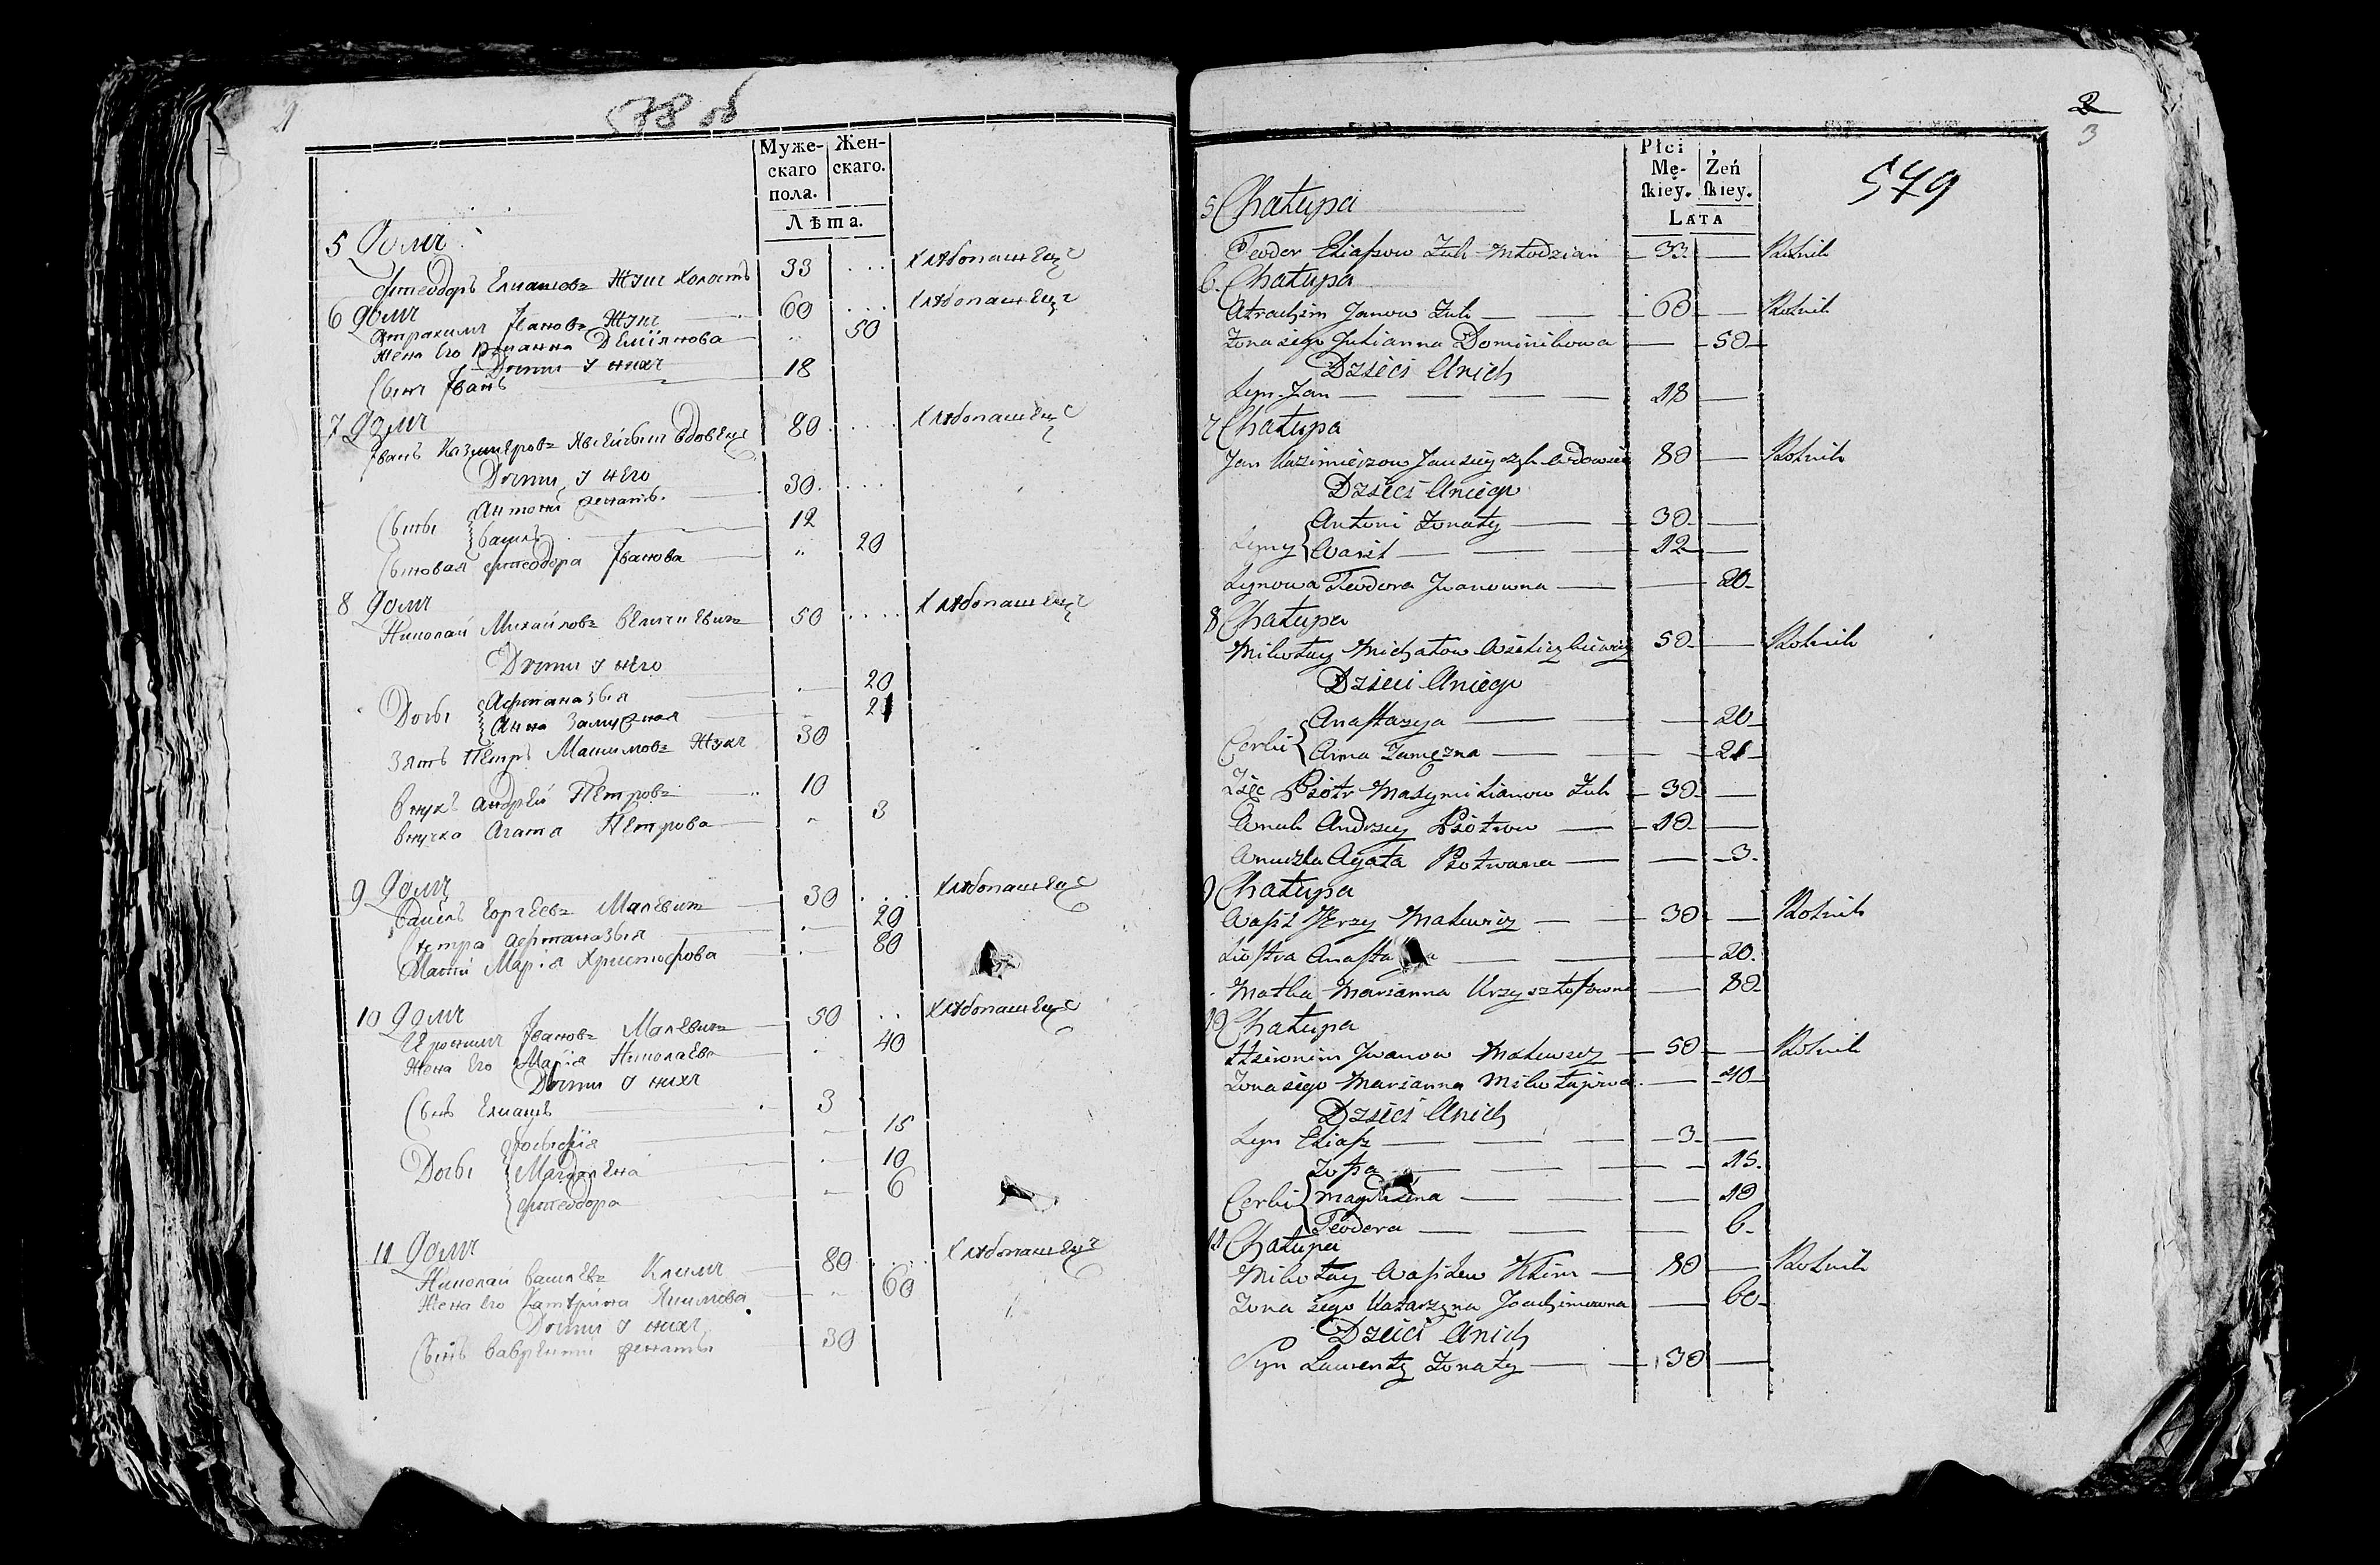 578 об
Муже-
скаго
пола.
Жен-
скаго.
Лѣта.
5 Домъ
Фтеодоръ Елиашовъ Жукъ Холостъ 33 .... Хлѣбопашецъ
6 Домъ
Атрахимъ Ивановъ Жукъ 60 ... Хлѣбопашецъ
Жена Его 50
Дѣти у нихъ
Сынъ Иванъ 18
7 Домъ
Иванъ Казимѣровъ вдовецъ 80 .... Хлѣбопашецъ
Дѣти у него
Сыны Антоний женатъ. 30
Василь 12
Сыновая Фтеодора Иванова 20
8 Домъ
Николай Михайловъ 50 .... Хлѣбопашецъ
Дѣти у него
Дочьи Афтаназыя 20
Анна Замужная 21
Зять Петръ Жукъ 30
Внукъ Андрей Петровъ 10
Внучка Агата Петрова 3
9 Домъ
Василь Малевичъ 30 ... Хлѣбопашецъ
Сестра Афтаназыя 20
Мати Мария Христофова 80
10 Домъ
Иеронимъ Ивановъ Малевичъ 50 .. Хлѣбопашецъ
Жена Его Марія Николаева 40
Дѣти у нихъ
Сынъ Елиашъ 3
15
Дочьи Магдалена 10
Фтеодора 6
11 Домъ
Николай Василевъ Климъ 80 .... Хлѣбопашецъ
Жена Его Катерина Якимова 60
Дѣти у нихъ
Сынъ Вавренти женаты 30
2
3
579
Płci
Mę-
skiey.
Żeń
skiey.
LATA
5 Chałupa
Teodor Eliaszow Żuk Młodzian 33 Rolnik
6. Chałupa
Atrachim Janow Żuk 60 Rolnik
Żona iego Julianna Dominikowa 50
Dzieci Unich
Syn Jan 18
7 Chałupa
Jan Kazimierzow wdowiec 80 Rolnik
Dzieci Uniego
Syny Antoni żonaty 30
Wasil 12
Synowa Teodora Iwanowna 20
8 Chałupa
Mikołay Michałow 50 Rolnik
Dzieci Uniego
Corki Anastazya 20
Anna Zamęzna 21
Zięc Piotr Maxymilianow Żuk 30
Wnuk Andrzey Piotrow 10
Wnuczka Agata Piotrowna 3
9 Chałupa
Wasil Jerzy Malewicz 30 Rolnik
Siostra 20
Matka Marianna Krzysztofowna 80
10 Chałupa
Hieronim Iwanow Malewicz 50 Rolnik
Żona iego Marianna Mikołajowa 40
Dzieci Unich
Syn Eliasz 3
Zofia 15
Corki Magdalena 10
Teodora 6
11 Chałupa
Mikołay Wasilew Klim 80 Rolnik
Żona iego Katarzyna Joachimowna 60
Dzieci Unich
Syn Laurenty żonaty 30